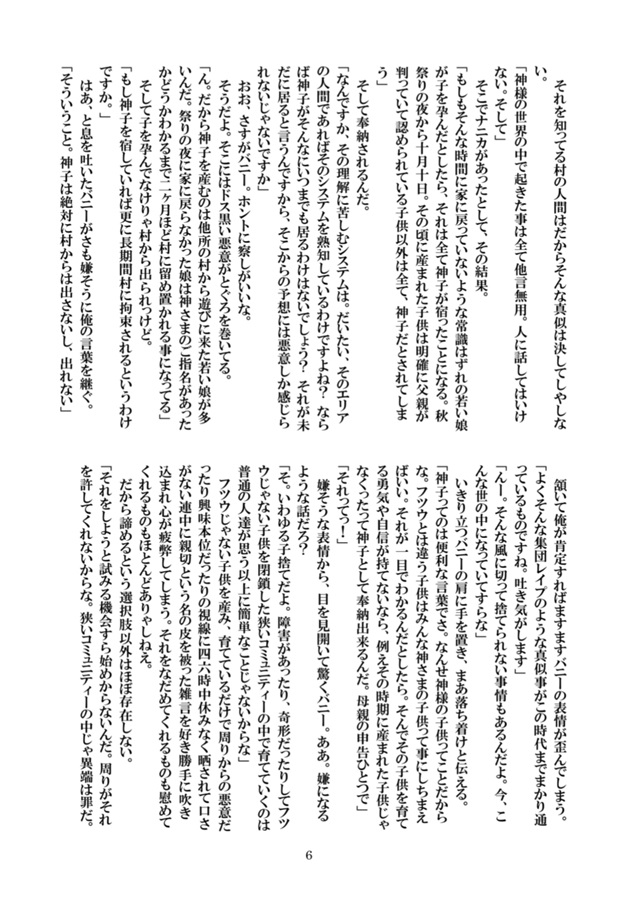 それを知ってる村の人間はだからそんな真似は決してしやしな
い。
「神様の世界の中で起きた事は全て他言無用。人に話してはいけ
ない。そして」
そこでナニカがあったとして、その結果。
「もしもそんな時間に家に戻っていないような常識はずれの若い娘
が子を孕んだとしたら、それは全て神子が宿ったことになる。秋
祭りの夜から十月十日。その頃に産まれた子供は明確に父親が
判っていて認められている子供以外は全て、神子だとされてしま
う」
そして奉納されるんだ。
「なんですか、その理解に苦しむシステムは。だいたい、そのエリア
の人間であればそのシステムを熟知しているわけですよね? なら
ば神子がそんなにいつまでも居るわけはないでしょう? それが未
だに居ると言うんですから、そこからの予想には悪意しか感じら
れないじゃないですか」
おお、さすがバニー。ホントに察しがいいな。
そうだよ。そこにはドス黒い悪意がとぐろを巻いてる。
「ん。だから神子を産むのは他所の村から遊びに来た若い娘が多
いんだ。祭りの夜に家に戻らなかった娘は神さまのご指名があった
かどうかわかるまで二ヶ月ほど村に留め置かれる事になってる」
そして子を孕んでなけりゃ村から出られっけど。
「もし神子を宿していれば更に長期間村に拘束されるというわけ
ですか。」
はあ、と息を吐いたバニーがさも嫌そうに俺の言葉を継ぐ。
「そういうこと。神子は絶対に村からは出さないし、出れない」
頷いて俺が肯定すればますますバニーの表情が歪んでしまう。
「よくそんな集団レイプのような真似事がこの時代までまかり通
っているものですね。吐き気がします」
「んー。そんな風に切って捨てられない事情もあるんだよ。今、こ
んな世の中になっていてすらな」
いきり立つバニーの肩に手を置き、まあ落ち着けと伝える。
「神子ってのは便利な言葉でさ。なんせ神様の子供ってことだから
な。フツウとは違う子供はみんな神さまの子供って事にしちまえ
ばいい。それが一目でわかるんだとしたら。そんでその子供を育て
る勇気や自信が持てないなら、例えその時期に産まれた子供じゃ
なくったって神子として奉納出来るんだ。母親の申告ひとつで」
「それってっ!」
嫌そうな表情から、目を見開いて驚くバニー。ああ。嫌になる
ような話だろ?
「そ。いわゆる子捨てだよ。障害があったり、奇形だったりしてフツ
ウじゃない子供を閉鎖した狭いコミュニティーの中で育てていくのは
普通の人達が思う以上に簡単なことじゃないからな」
フツウじゃない子供を産み、育てているだけで周りからの悪意だ
ったり興味本位だったりの視線に四六時中休みなく晒されて口さ
がない連中に親切という名の皮を被った雑言を好き勝手に吹き
込まれ心が疲弊してしまう。それをなだめてくれるものも慰めて
くれるものもほとんどありゃしねえ。
だから諦めるという選択肢以外はほぼ存在しない。
「それをしようと試みる機会すら始めからないんだ。周りがそれ
を許してくれないからな。狭いコミュニティーの中じゃ異端は罪だ。
6